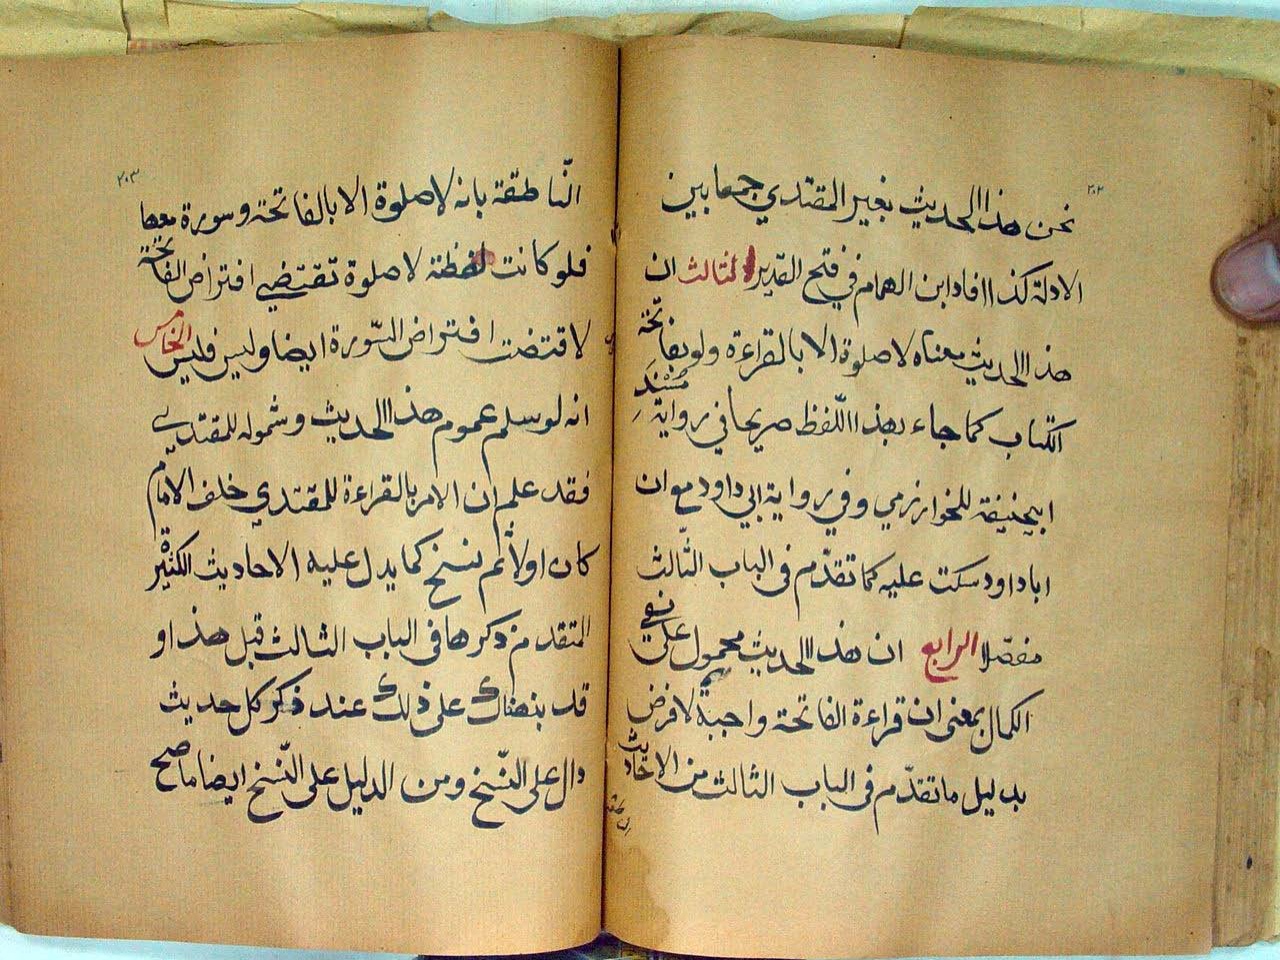 ٢٠٢
نحن هذا الحديث بغير المقتدي جمعا بين
الادلة كذا افاد ابن الهمام في فتح القدير الثالث ان
هذا الحديث معناه لا صلوة الا بالقراءة ولو بفاتحة
الكتاب كما جاء بهذا اللفظ صريحا في رواية مسند
ابيحنيفة للخوارزمي وفي رواية ابي داود مع ان
ابا داود سكت عليه كما تقدّم في الباب الثّالث
مفصّلا الرابع ان هذا الحديث محمول على نفي
الكمال بمعنى ان قراءة الفاتحة واجبة لا فرض
بدليل ما تقدّم في الباب الثالث من الاحاديث
٢٠٣
النّاطقة بانه لا صلوة الا بالفاتحة وسورة معها
فلو كانت لفظة لا صلوة تقتضي افتراض الفاتحة
لاقتضت افتراض السّورة ايضا وليس فليس الخامس
انه لو سلم عموم هذا الحديث وشموله للمقتدي
فقد علم ان الامر بالقراءة للمقتدي خلف الامام
كان اولا ثم نسخ كما يدل عليه الاحاديث الكثيرة
المتقدم ذكرها في الباب الثالث قبل هذا و
قد بنهناك على ذلك عند ذكر كل حديث
دال على النّسخ ومن الدليل على النّسخ ايضا ما صح